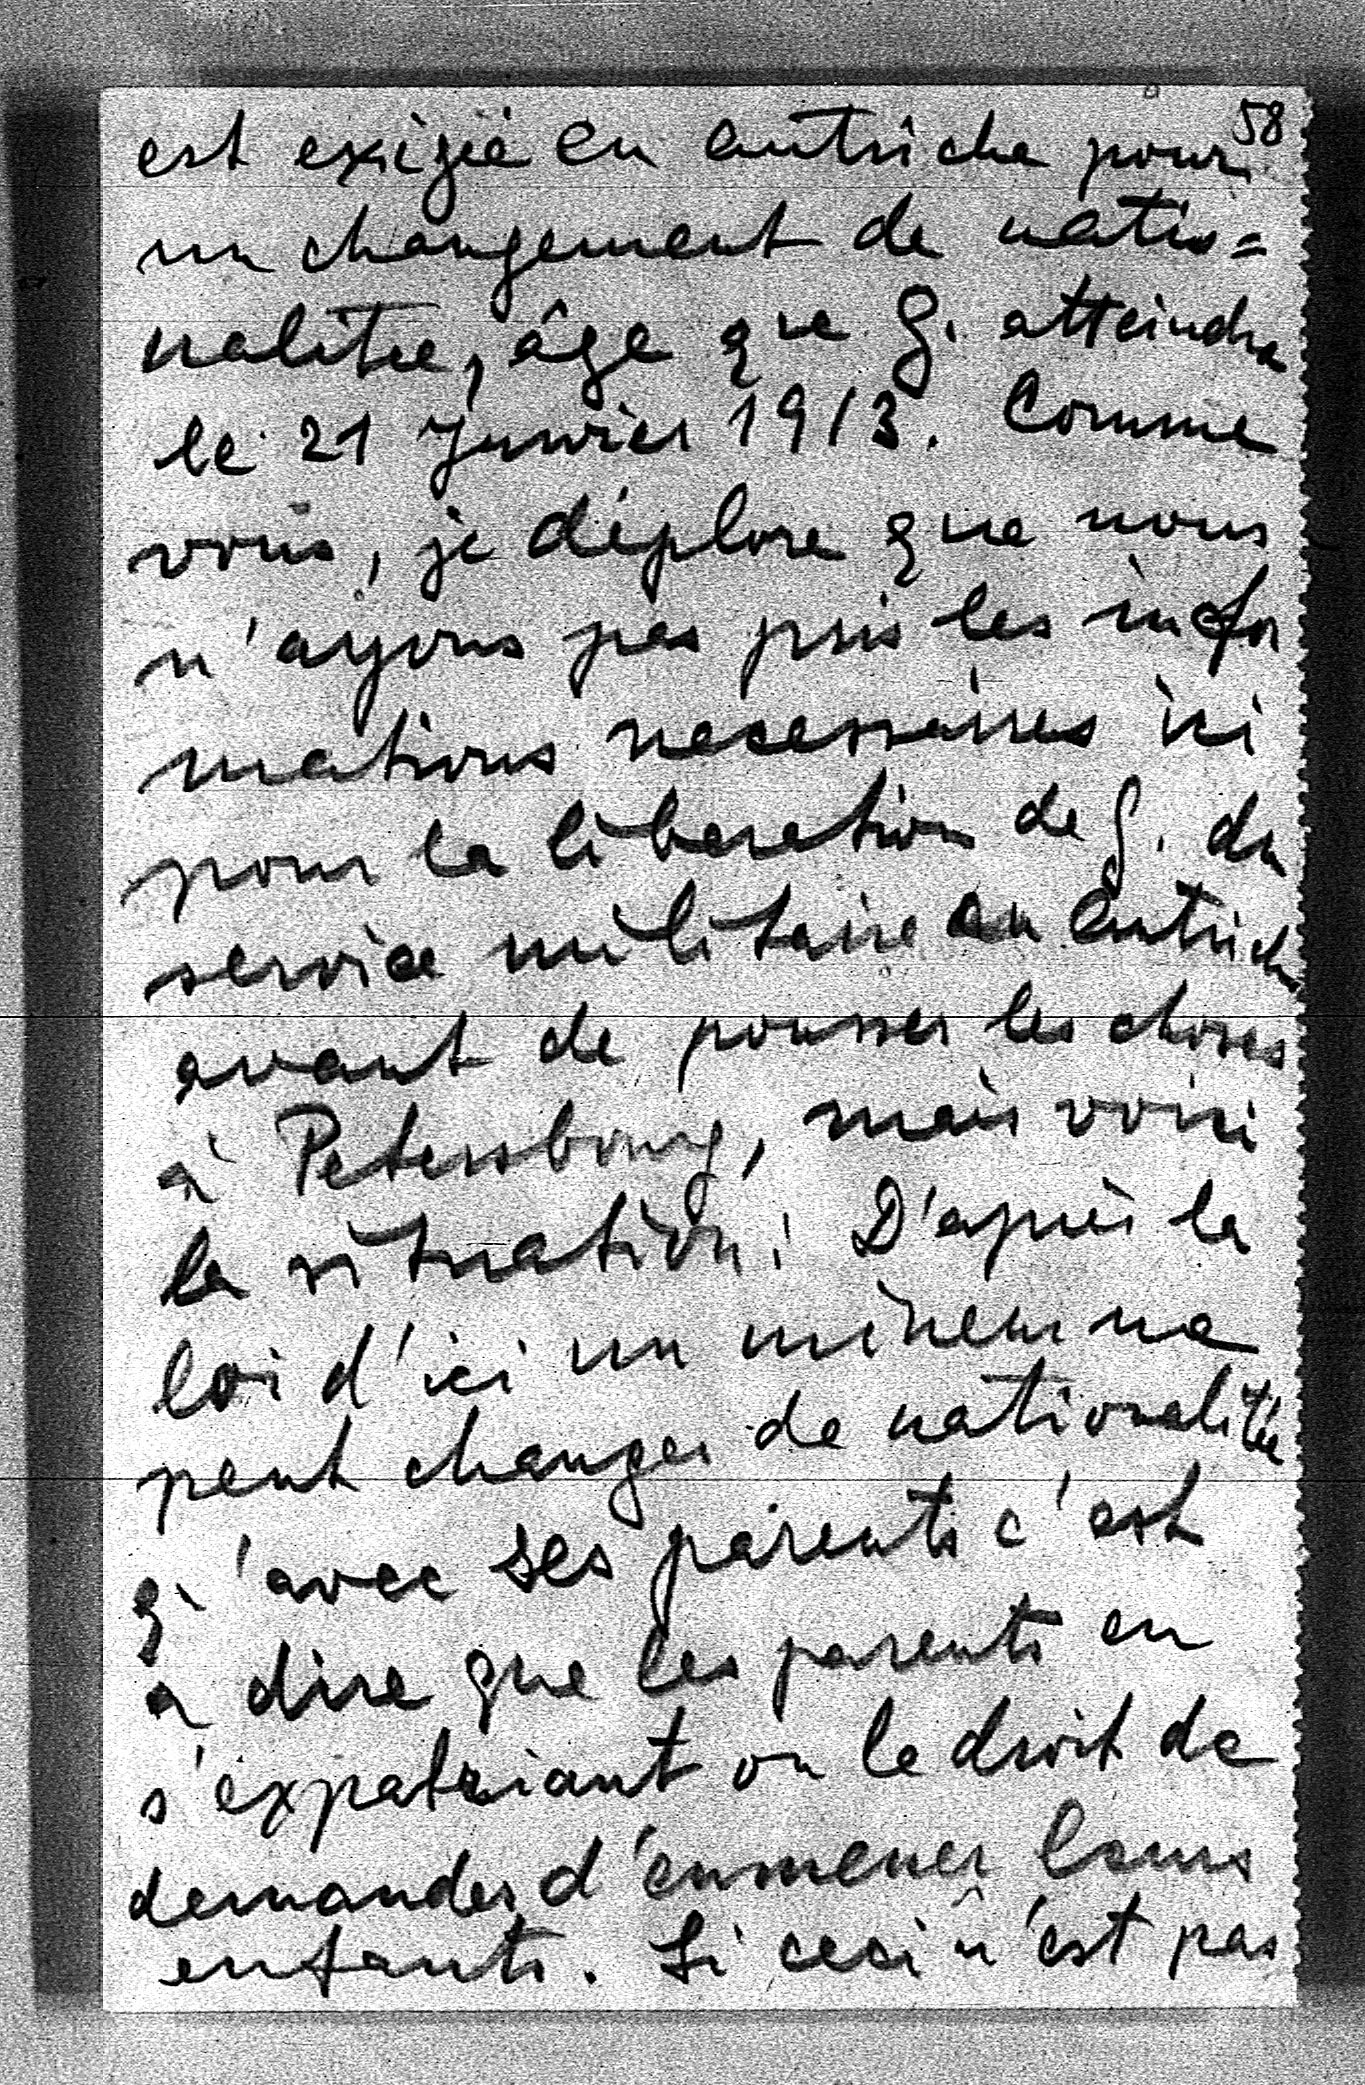 58
est exigié en autriche pour
un changement de natio=
nalitée, âge que G. atteindra
le 21 Janvier 1913. Comme
vous, je déplore que nous
n'ayons pas pris les infor
mations necessaires ici
pour la liberation de G. du
service militaire en autriche
avant de pousser les choses
à Petersbourg, mais voici
la situation: D'après la
loi d'ici un mineur ne
peut changer de nationalitée
q'avec ses parents c'est
a dire que les parents en
s'expatriant on le droit de
demander d'enmener leurs
enfants. Si ceci n'est pas